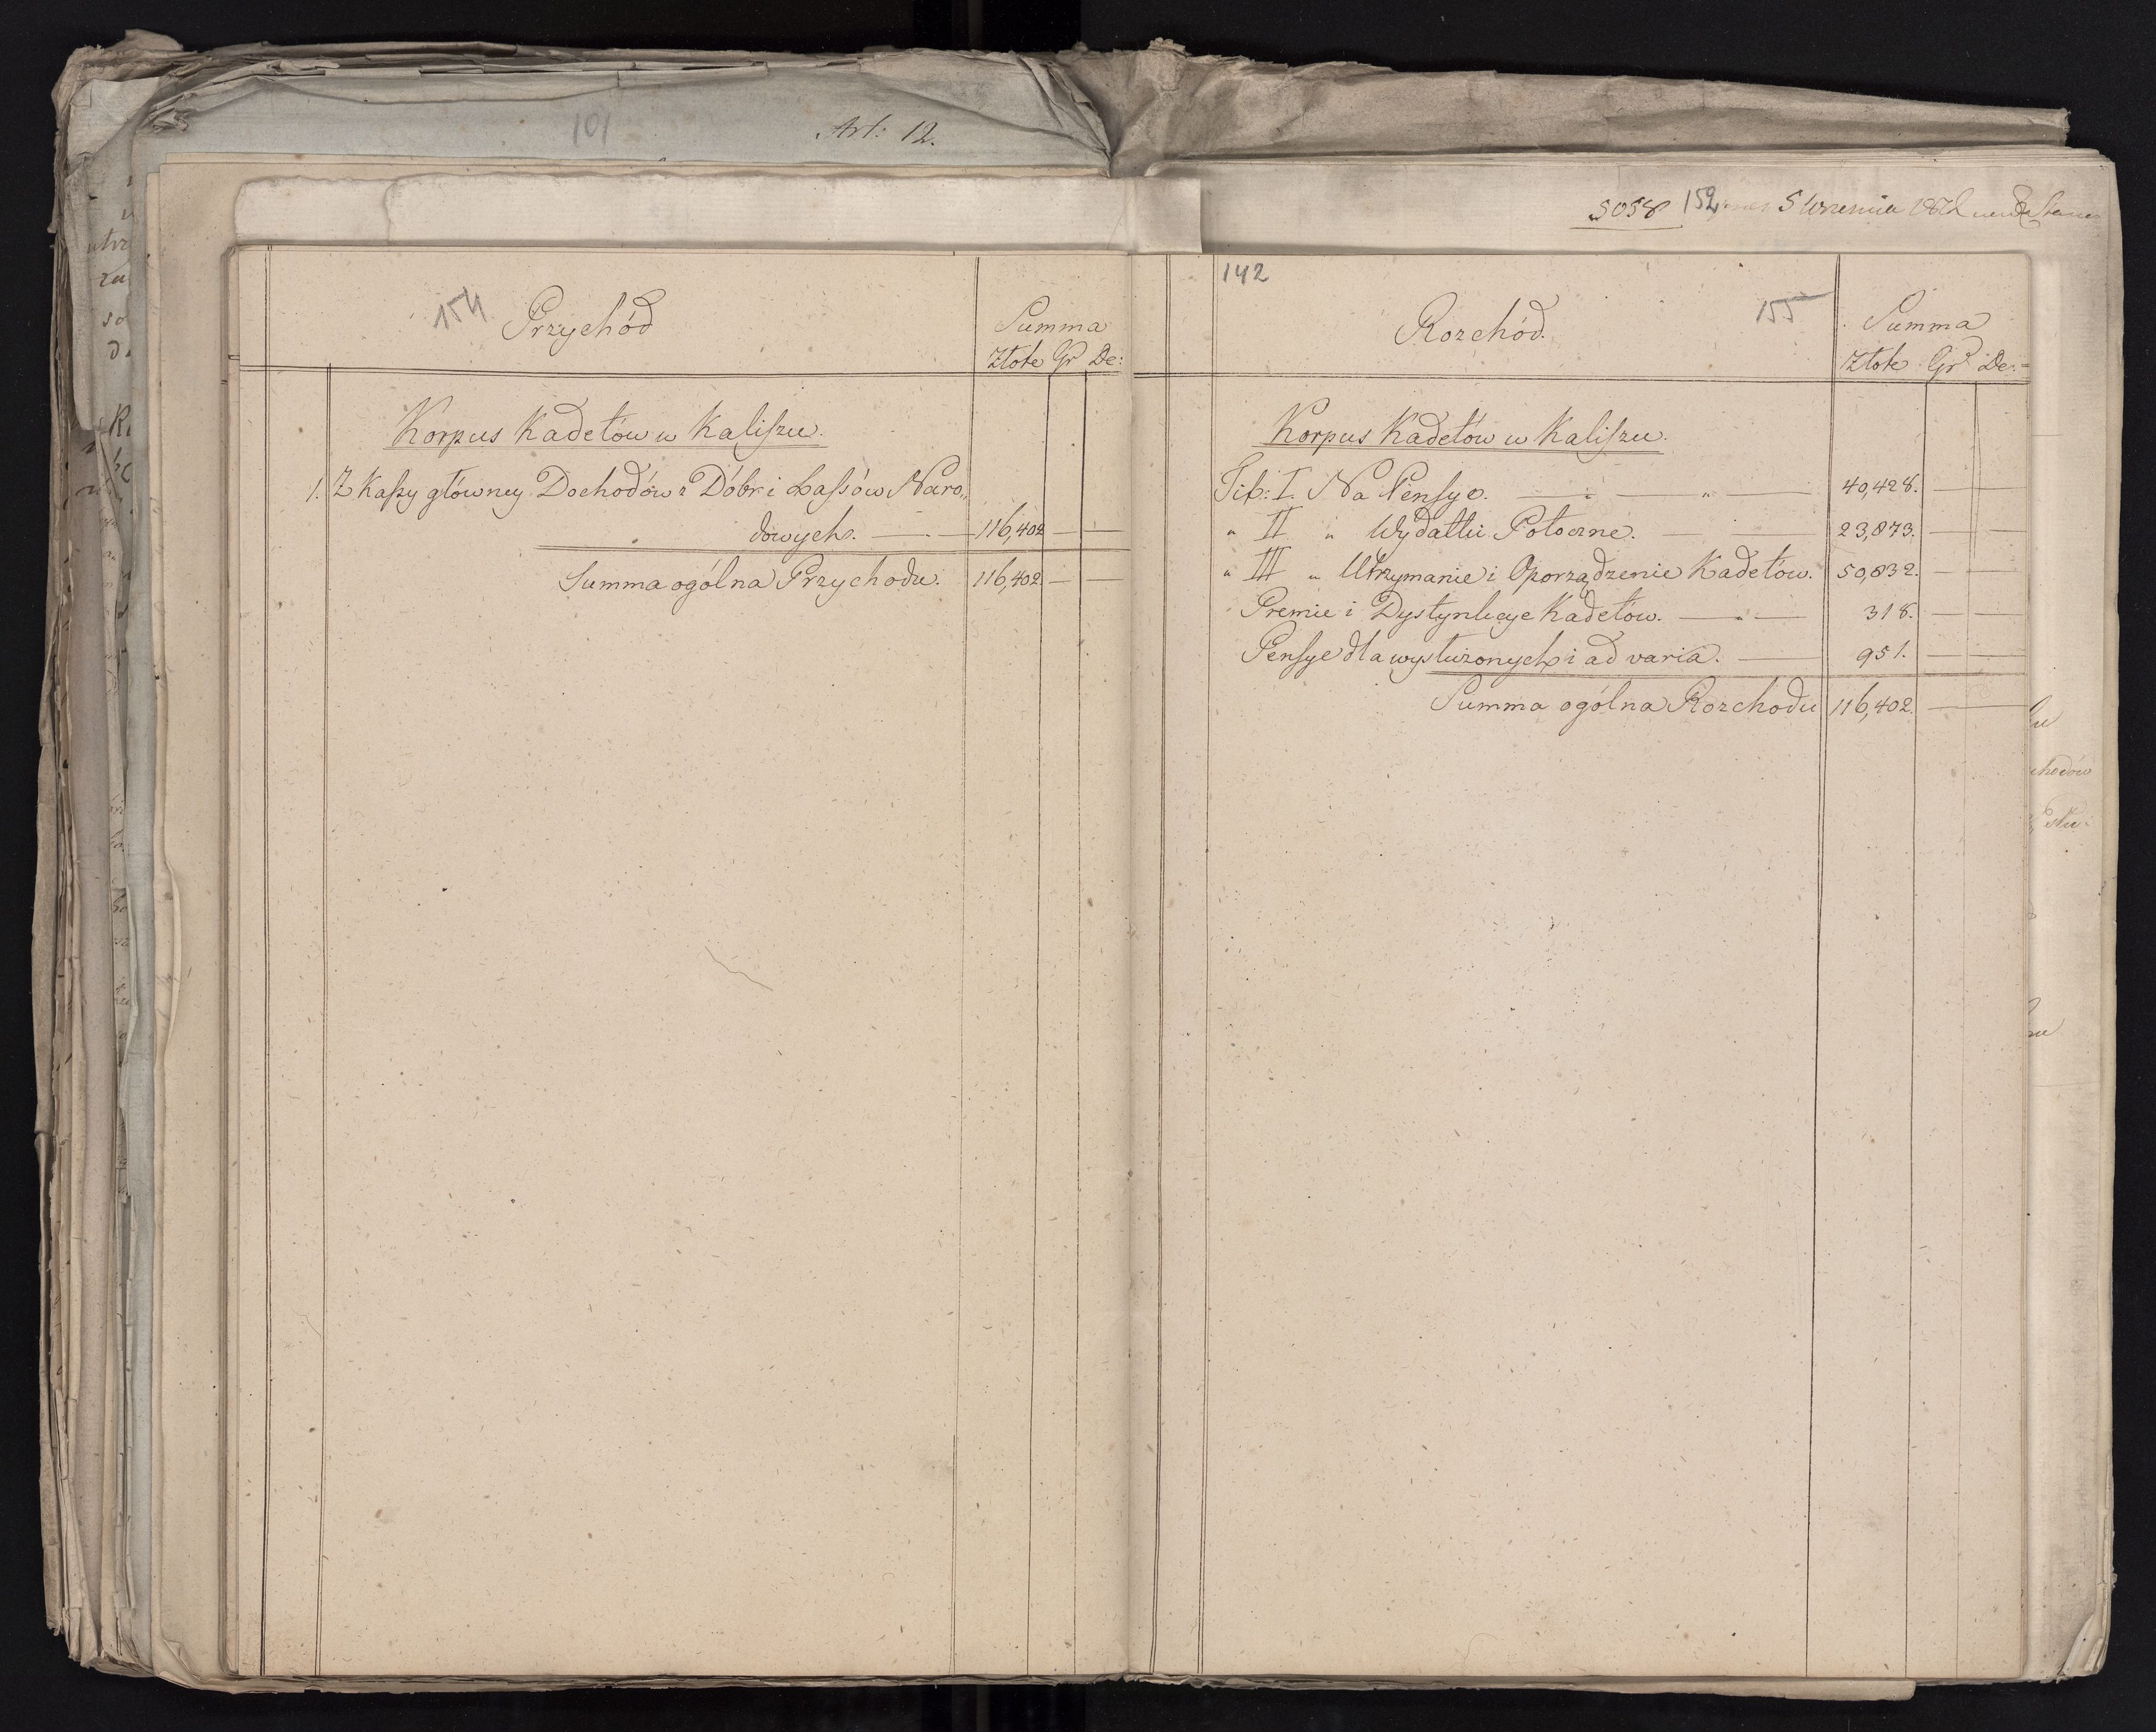 101
Art: 12.
5058
152
5 Września
154
Przychód
Summa
Złote Gr De:
Korpus Kadetów w Kaliszu.
1. Z Kassy główney Dochodów z Dóbr i Lassów Naro„
dowych. 116,402
Summa ogólna Przychodu. 116,402.
142
155
Rozchód.
Summa
Złote Gr De:
Korpus Kadetów w Kaliszu.
Tit: I. Na Pensye. 40,428.
" II " Wydatki Potoczne. 23,873.
" III " Utrzymanie i Oporządzenie Kadetów. 50,832.
Premie i Dystynkcye Kadetów. 318.
Pensye dla wysłużonych i ad varia. 951.
Summa ogólna Rozchodu 116,402.